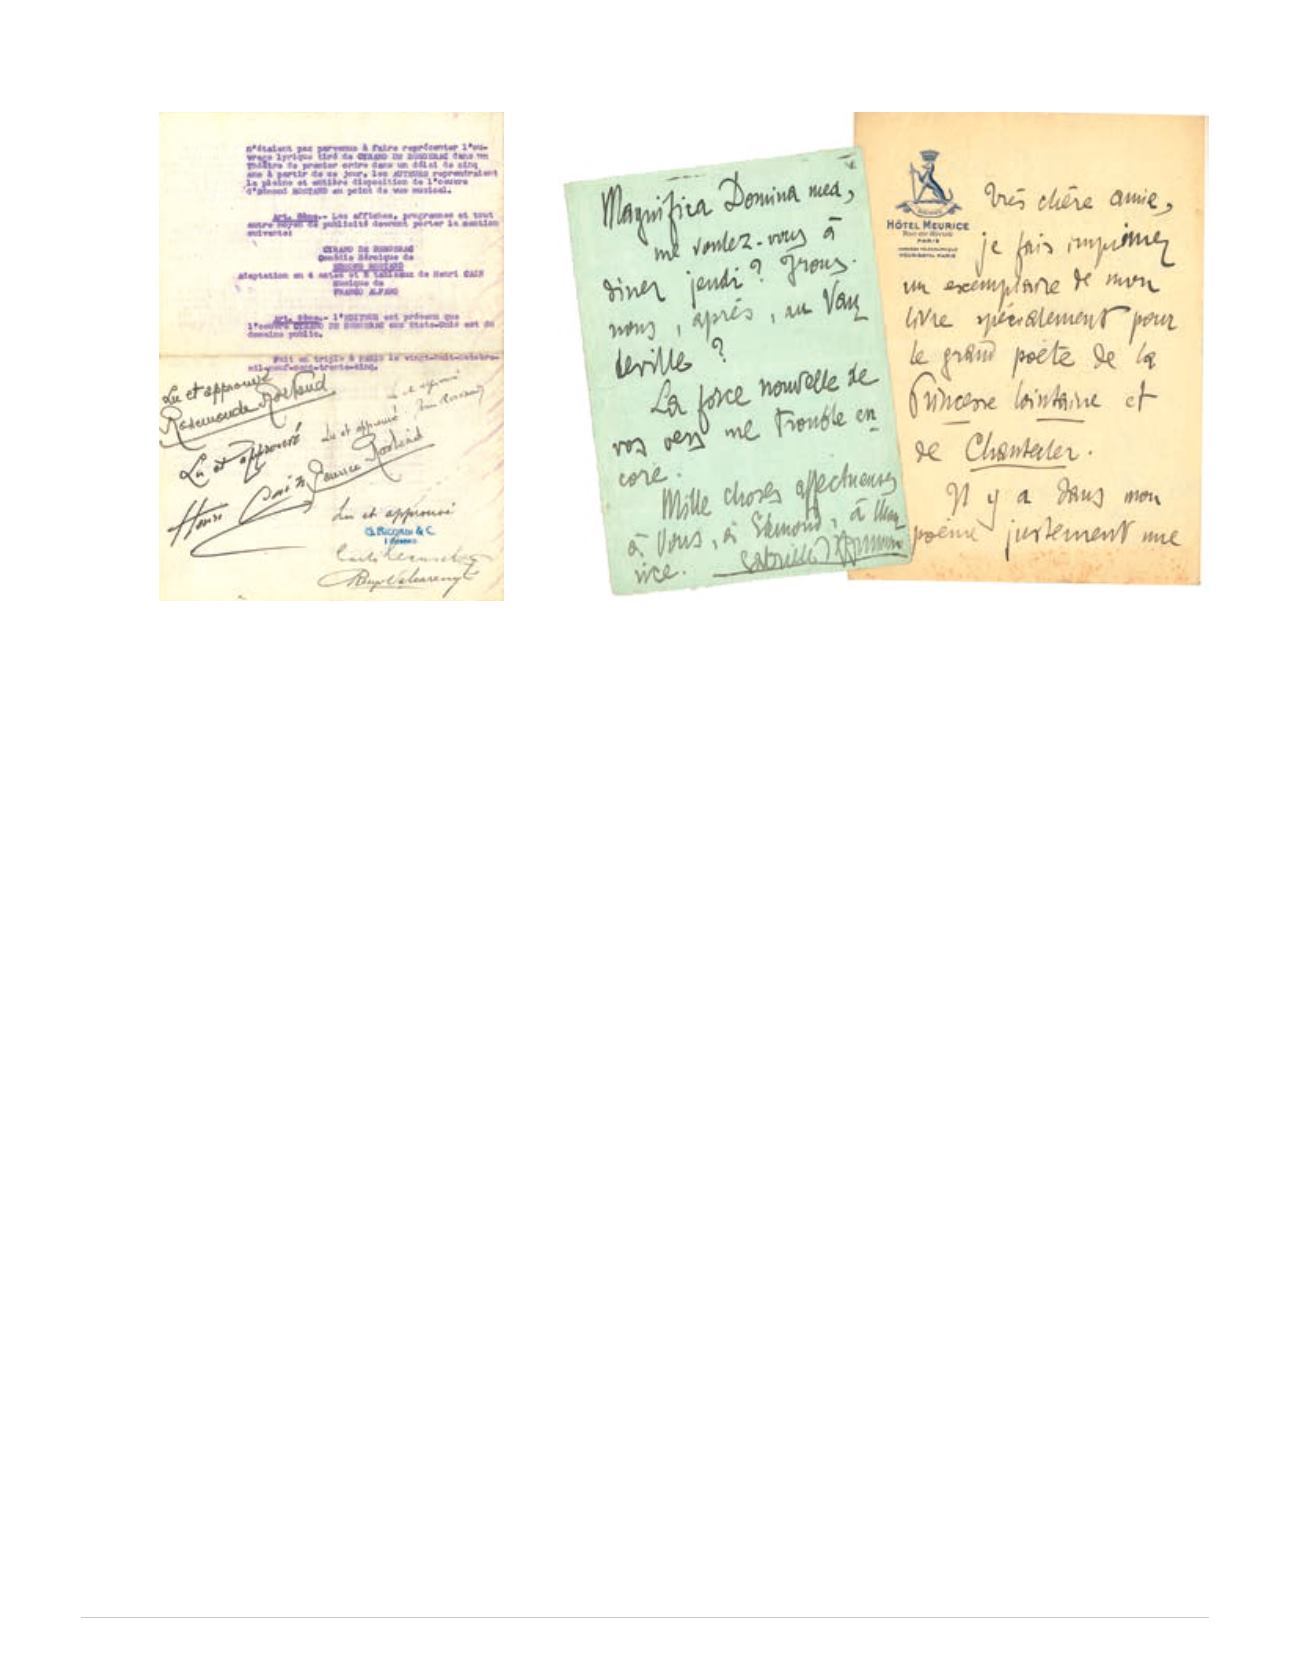 n'étaient pas parvenus à faire représenter l'ou-
vrage lyrique tiré de CYRANO DE BERGERAC dans un
Théâtre de premier ordre dans un délai de cinq
ans à partir de ce jour, les AUTEURS reprendraient
la pleine et entière disposition de l'oeuvre
d'Edmond ROSTAND au point de vue musical.
Les affiches, programmes et tout
autre moyen de publicité devront porter la mention
suivante:
CYRANO DE BERGERAC
Comédie Héroïque de
EDMOND ROSTAND
Adaptation en 4 actes et 5 tableaux de Henri CAIN
Musique de
FRANCO ALFANO
l'EDITEUR est prévenu que
l'oeuvre CYRANO DE BERGERAC aux Etats-Unis est du
domaine public.
Fait en triple à PARIS le vingt-huit-octobre-
mil-neuf-cent-trente-cinq.
Lu et approuvé
Rosemonde Rostand
Lu et approuvé
Lu et approuvé
Lu et approuvé
Maurice Rostand
Henri Cain
Lu et approuvé
G. RICORDI & C.
Magnifica Domina mea,
me voulez-vous à
dîner jeudi ? Irons-
nous, après, au Vau
deville ?
La force nouvelle de
vos vers me trouble en
core.
Mille choses affectueuses
à vous, à Edmond, à Mau
rice.
HÔTEL MEURICE
RUE DE RIVOLI
PARIS
Très chère amie,
je fais imprimer
un exemplaire de mon
livre spécialement pour
le grand poète de la
Princesse lointaine et
de Chantecler.
Il y a dans mon
poème justement une